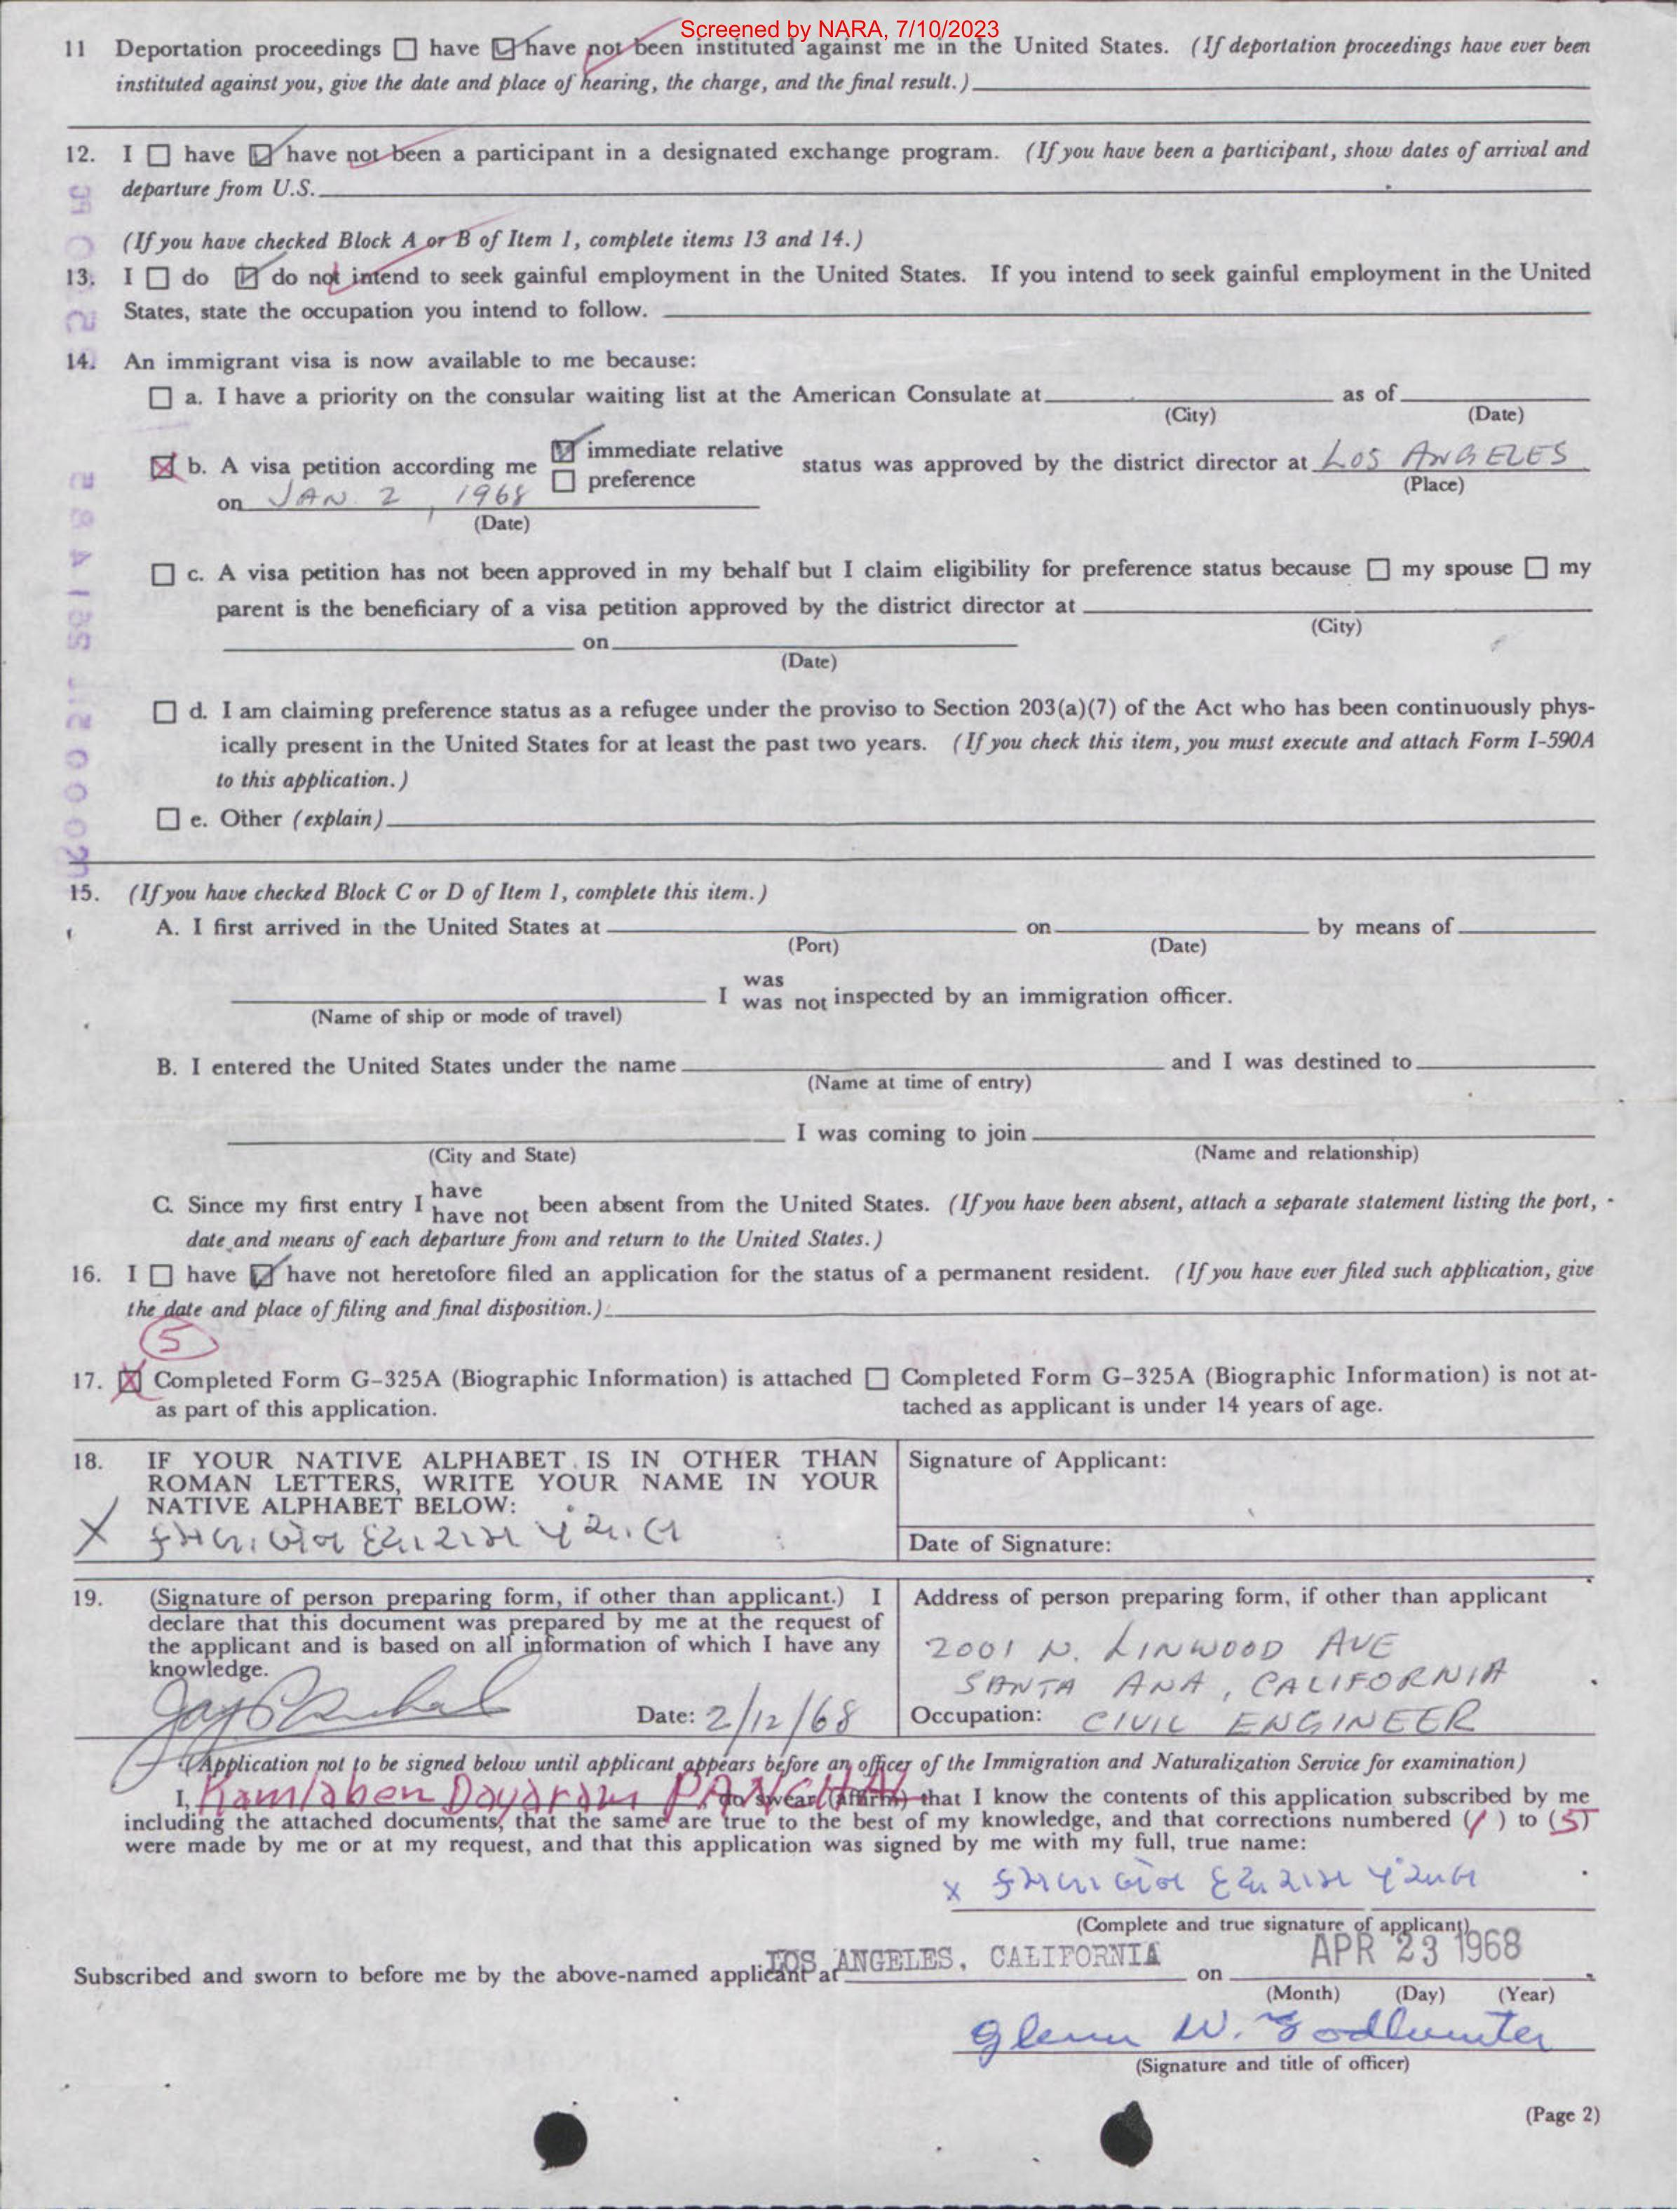 Screened by NARA, 7/10/2023
11 Deportation proceedings ☐ have ☑ have not been instituted against me in the United States. (If deportation proceedings have ever been
instituted against you, give the date and place of hearing, the charge, and the final result.)
12. I ☐ have ☑ have not been a participant in a designated exchange program. (If you have been a participant, show dates of arrival and
departure from U.S.
(If you have checked Block A or B of Item 1, complete items 13 and 14.)
13. I ☐ do ☑ do not intend to seek gainful employment in the United States. If you intend to seek gainful employment in the United
States, state the occupation you intend to follow.
14. An immigrant visa is now available to me because:
☐ a. I have a priority on the consular waiting list at the American Consulate at as of
(City) (Date)
☒ b. A visa petition according me ☑ immediate relative ☐ preference status was approved by the district director at LOS ANGELES
(Place)
on JAN. 2, 1968
(Date)
☐ c. A visa petition has not been approved in my behalf but I claim eligibility for preference status because ☐ my spouse ☐ my
parent is the beneficiary of a visa petition approved by the district director at
(City)
on
(Date)
☐ d. I am claiming preference status as a refugee under the proviso to Section 203(a)(7) of the Act who has been continuously phys-
ically present in the United States for at least the past two years. (If you check this item, you must execute and attach Form I-590A
to this application.)
☐ e. Other (explain)
15. (If you have checked Block C or D of Item 1, complete this item.)
A. I first arrived in the United States at on by means of
(Port) (Date)
I was was not inspected by an immigration officer.
(Name of ship or mode of travel)
B. I entered the United States under the name and I was destined to
(Name at time of entry)
I was coming to join
(City and State) (Name and relationship)
C. Since my first entry I have have not been absent from the United States. (If you have been absent, attach a separate statement listing the port,
date and means of each departure from and return to the United States.)
16. I ☐ have ☑ have not heretofore filed an application for the status of a permanent resident. (If you have ever filed such application, give
the date and place of filing and final disposition.)
5
17. ☒ Completed Form G-325A (Biographic Information) is attached ☐ Completed Form G-325A (Biographic Information) is not at-
as part of this application. tached as applicant is under 14 years of age.
18. IF YOUR NATIVE ALPHABET IS IN OTHER THAN
ROMAN LETTERS, WRITE YOUR NAME IN YOUR
NATIVE ALPHABET BELOW:
X કમળાબેન દયારામ પંચાલ
Signature of Applicant:
Date of Signature:
19. (Signature of person preparing form, if other than applicant.) I
declare that this document was prepared by me at the request of
the applicant and is based on all information of which I have any
knowledge.
Date: 2/12/68
Address of person preparing form, if other than applicant
2001 N. LINWOOD AVE
SANTA ANA, CALIFORNIA
Occupation: CIVIL ENGINEER
(Application not to be signed below until applicant appears before an officer of the Immigration and Naturalization Service for examination)
I, Kamlaben Dayaram PANCHAL do swear (affirm) that I know the contents of this application subscribed by me
including the attached documents, that the same are true to the best of my knowledge, and that corrections numbered (1) to (5)
were made by me or at my request, and that this application was signed by me with my full, true name:
x કમળાબેન દયારામ પંચાલ
(Complete and true signature of applicant)
Subscribed and sworn to before me by the above-named applicant at LOS ANGELES, CALIFORNIA on APR 23 1968
(Month) (Day) (Year)
Glenn W. Godhunter
(Signature and title of officer)
(Page 2)